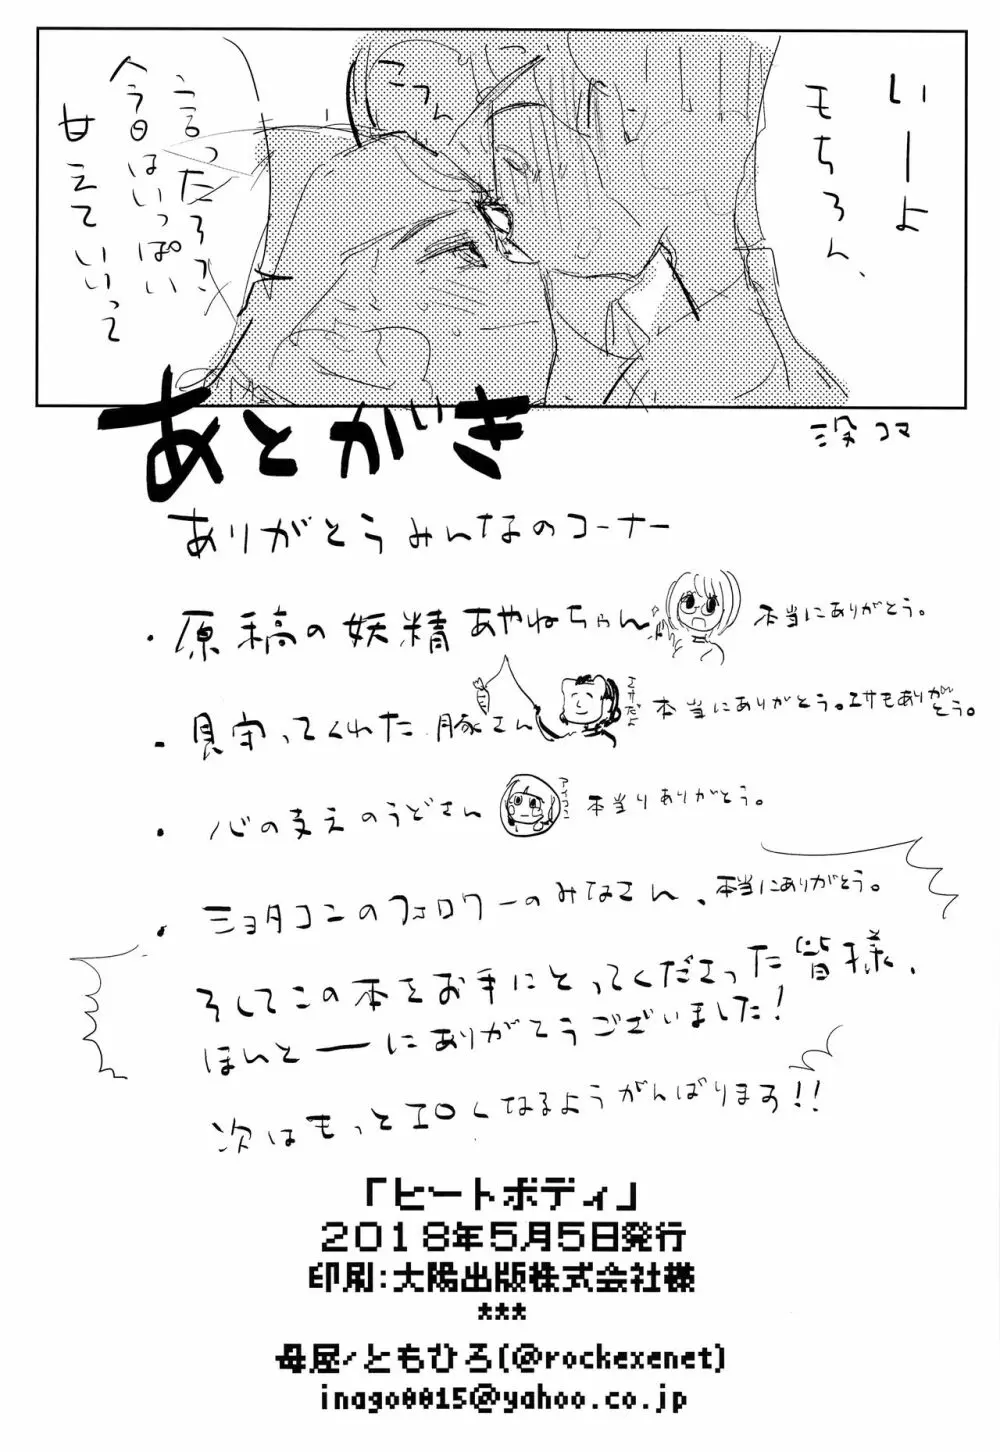 いーよ
もちろん、
こつん
言ったろ？
今日はいっぱい
甘えていいって
没コマ
あとがき
ありがとうみんなのコーナー
・原稿の妖精あやねちゃん 本当にありがとう。
・見守ってくれた豚さん エサだよ 本当にありがとう。エサもありがとう。
・心の支えのうどさん アイコン 本当りありがとう。
・ショタコンのフォロワーのみなさん、本当にありがとう。
そしてこの本をお手にとってくださった皆様、
ほんとーにありがとうございました！
次はもっとエロくなるようがんばります！！
「ヒートボディ」
2018年5月5日発行
印刷:大陽出版株式会社様
***
母屋/ともひろ(@rockexenet)
inago0015@yahoo.co.jp